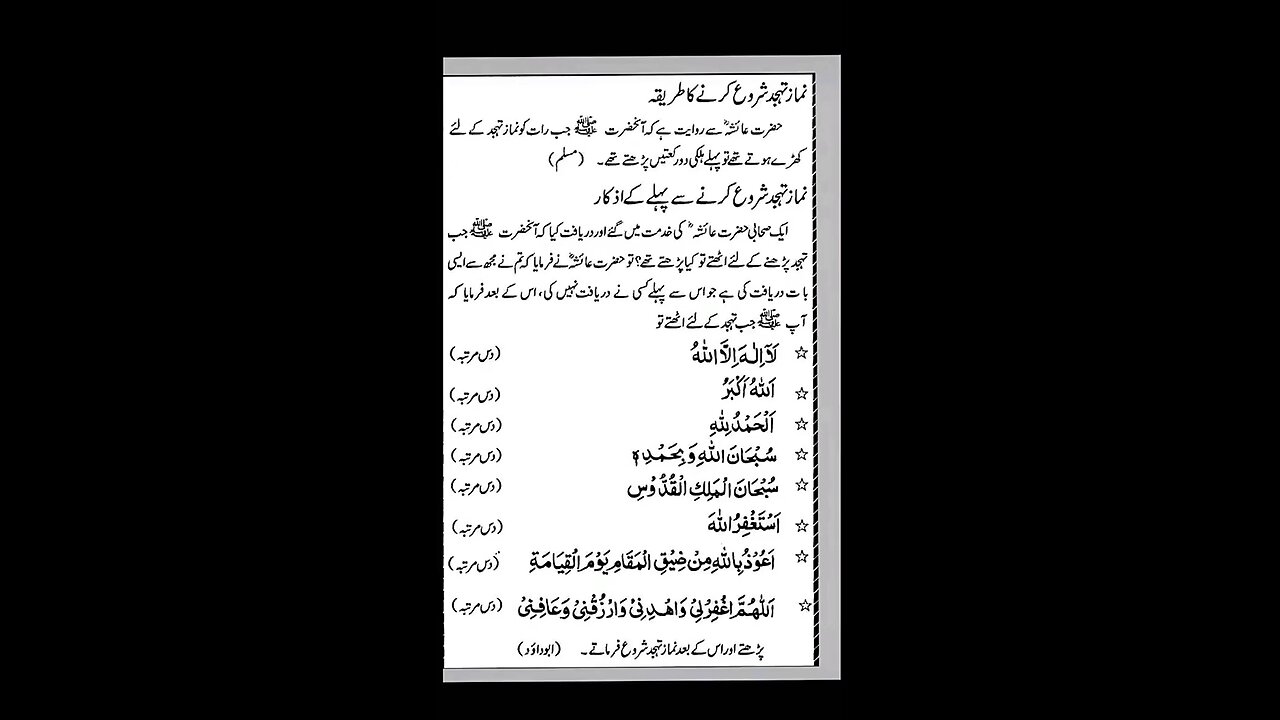 نماز تہجد شروع کرنے کا طریقہ
حضرت عائشہؓ سے روایت ہے کہ آنحضرت ﷺ جب رات کو نماز تہجد کے لئے
کھڑے ہوتے تھے تو پہلے ہلکی دو رکعتیں پڑھتے تھے۔ (مسلم)
نماز تہجد شروع کرنے سے پہلے کے اذکار
ایک صحابی حضرت عائشہؓ کی خدمت میں گئے اور دریافت کیا کہ آنحضرت ﷺ جب
تہجد پڑھنے کے لئے اٹھتے تو کیا پڑھتے تھے؟ تو حضرت عائشہؓ نے فرمایا کہ تم نے مجھ سے ایسی
بات دریافت کی ہے جو اس سے پہلے کسی نے دریافت نہیں کی، اس کے بعد فرمایا کہ
آپ ﷺ جب تہجد کے لئے اٹھتے تو
☆ لَآ اِلٰهَ اِلَّا اللّٰهُ (دس مرتبہ)
☆ اَللّٰهُ اَكْبَرُ (دس مرتبہ)
☆ اَلْحَمْدُ لِلّٰهِ (دس مرتبہ)
☆ سُبْحَانَ اللّٰهِ وَ بِحَمْدِهٖ (دس مرتبہ)
☆ سُبْحَانَ الْمَلِكِ الْقُدُّوْسِ (دس مرتبہ)
☆ اَسْتَغْفِرُ اللّٰهَ (دس مرتبہ)
☆ اَعُوْذُ بِاللّٰهِ مِنْ ضِيْقِ الْمَقَامِ يَوْمَ الْقِيَامَةِ (دس مرتبہ)
☆ اَللّٰهُمَّ اغْفِرْ لِىْ وَاهْدِنِىْ وَارْزُقْنِىْ وَعَافِنِىْ (دس مرتبہ)
پڑھتے اور اس کے بعد نماز تہجد شروع فرماتے۔ (ابوداؤد)